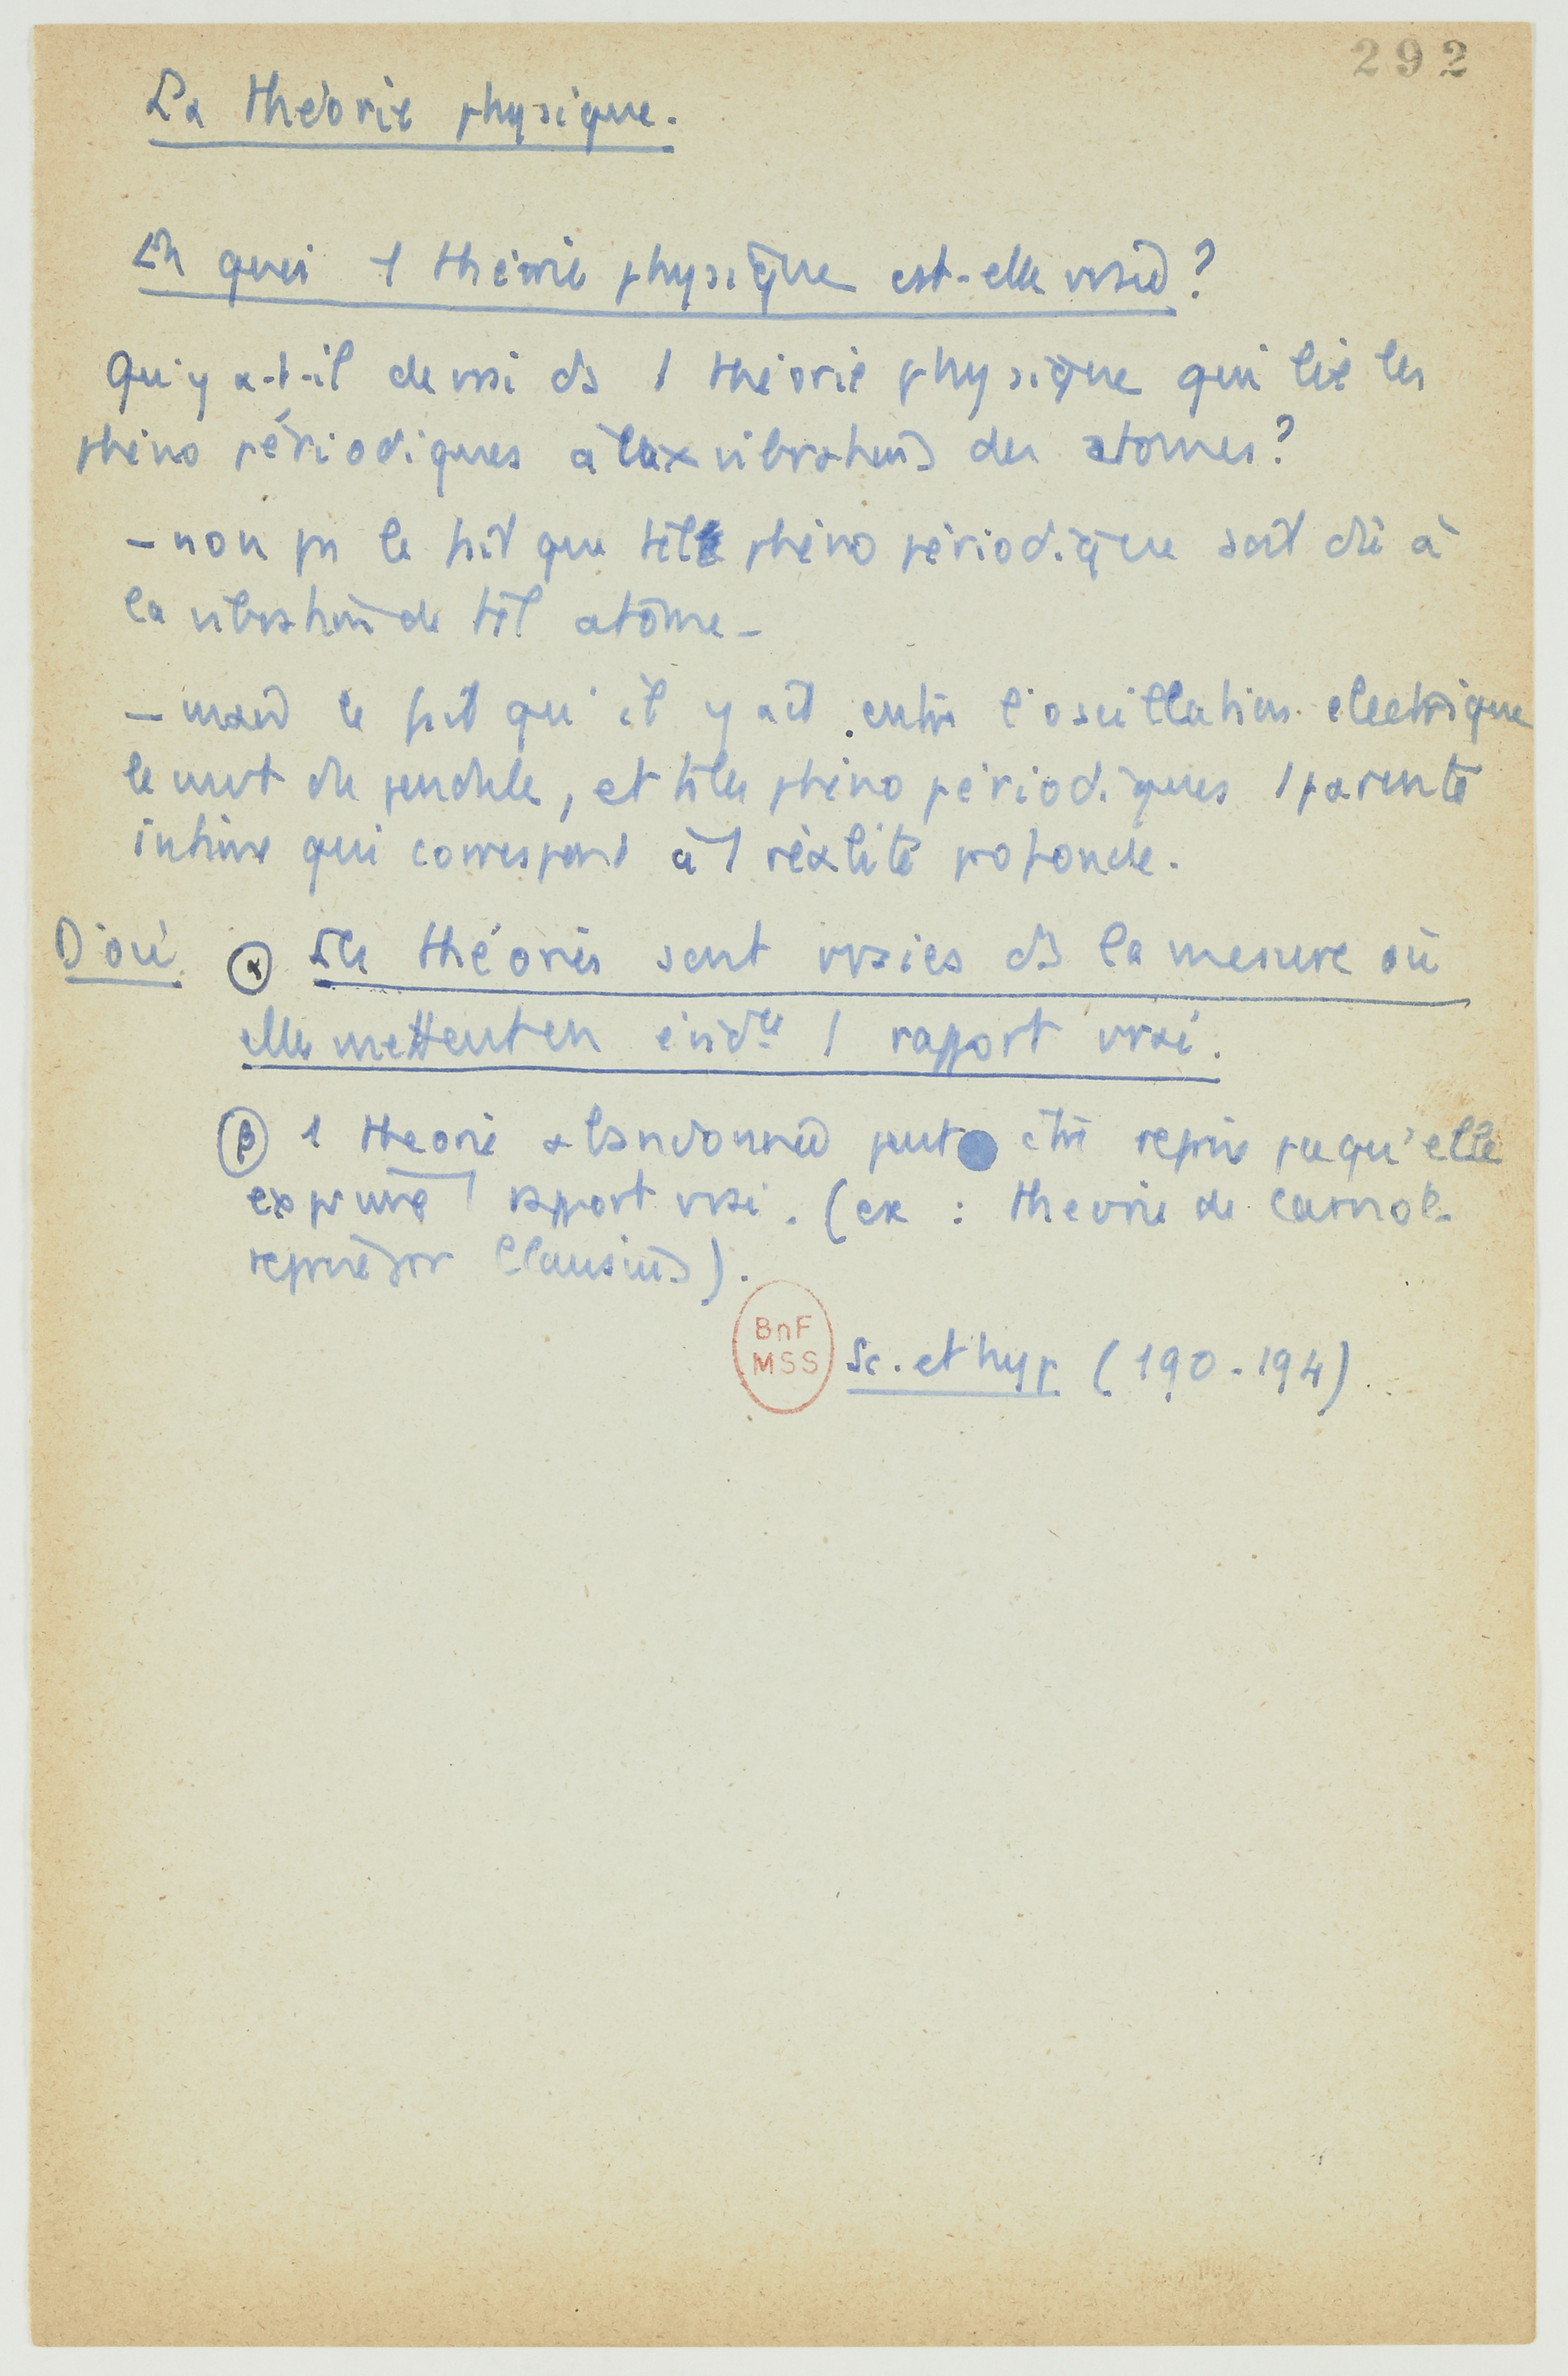 292
La théorie physique.
En quoi 1 théorie physique est-elle vraie ?
Qu'y a-t-il de vrai ds 1 théorie physique qui lie les
phéno périodiques à la vibrations des atomes ?
- non ps le fait que tel phéno périodique soit dû à
la vibration de tel atome -
- mais le fait qu'il y ait entre l'oscillation électrique
le mvt du pendule, et ts les phéno périodiques 1 parenté
intime qui correspond à 1 réalité profonde.
D'où α Les théories sont vraies ds la mesure où
elles mettent en évidce 1 rapport vrai.
β 1 théorie abandonnée peut être reprise pcequ'elle
exprime 1 rapport vrai. (ex : théorie de Carnot
reprise par Clausius).
BnF
MSS
Sc. et hyp (190-194)